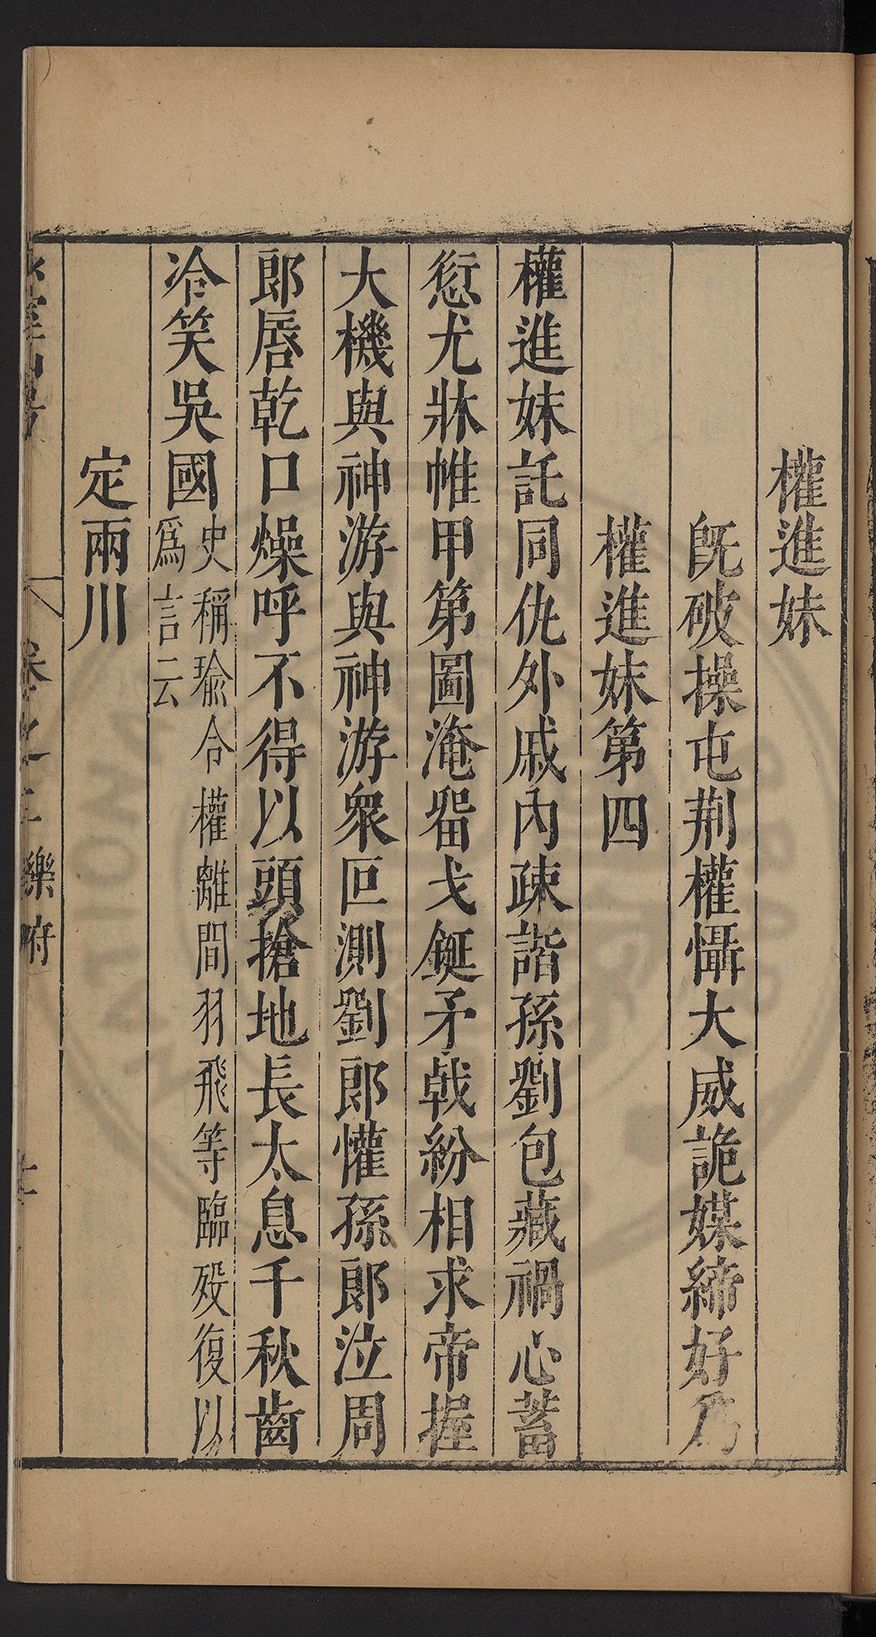 權進妹
旣破操屯荆權懾大威詭媒締好乃
權進妹第四
權進妹託同仇外戚內疎諧孫劉包藏禍心蓄
愆尤牀帷甲第圖淹畱戈鋋矛戟紛相求帝握
大機與神游與神游衆叵測劉郎懽孫郎泣周
郎唇乾口燥呼不得以頭搶地長太息千秋齒
冷笑吳國
史稱瑜合權離間羽飛等臨殁復以
爲言云
定兩川
卷之
樂府